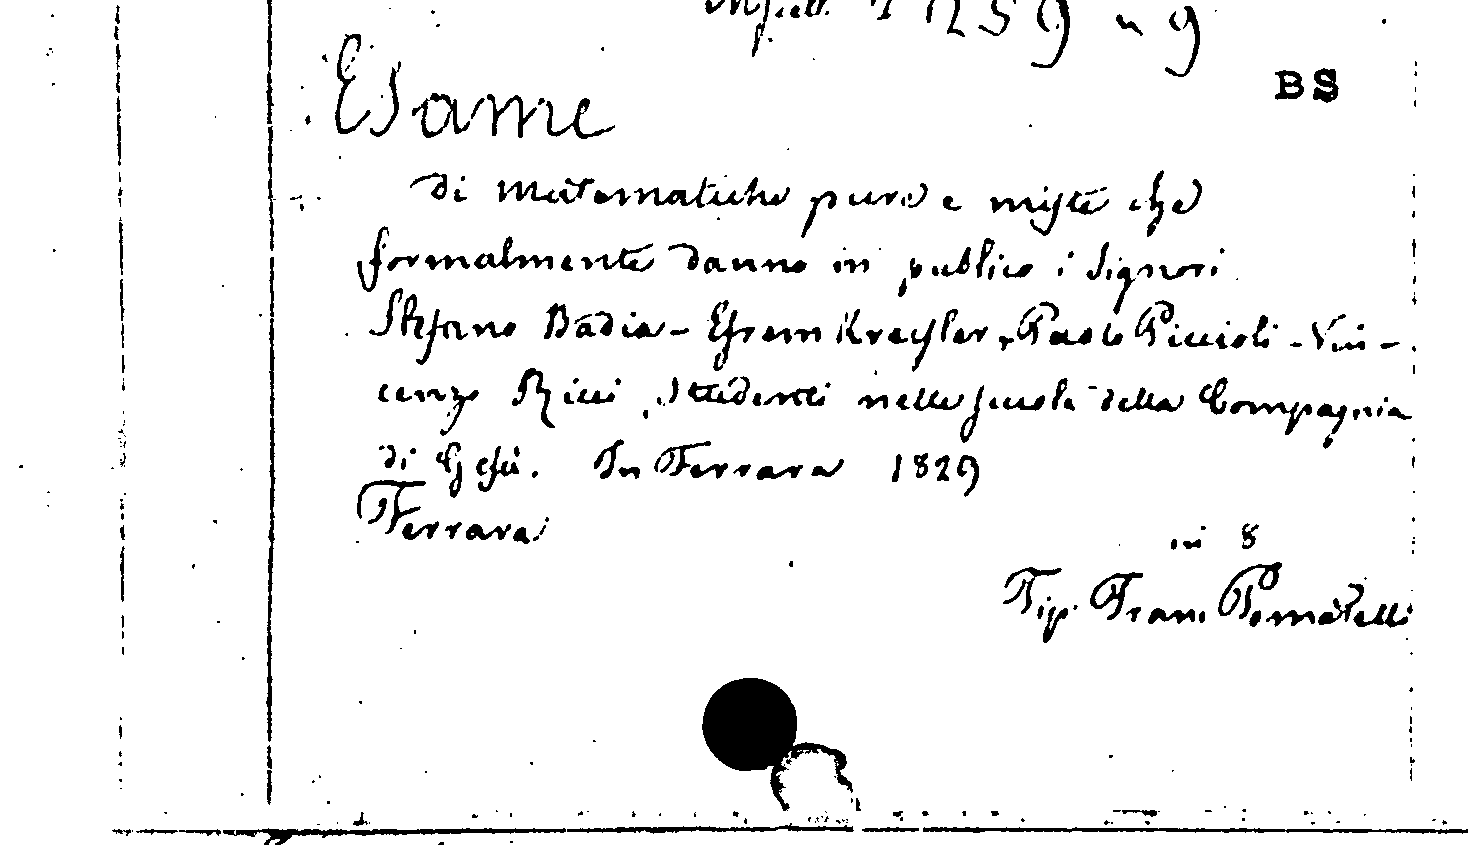 Miscell. 1259 n 9
BS
Esame
di matematiche pure e miste che
formalmente danno in publico i Signori
Stefano Badia - Efrem Kreysler, Paolo Piccioli - Vin-
cenzo Ricci, Studenti nelle scuole della Compagnia
di Gesù. In Ferrara 1829
Ferrara
in 8
Tip. Franc. Pomatelli